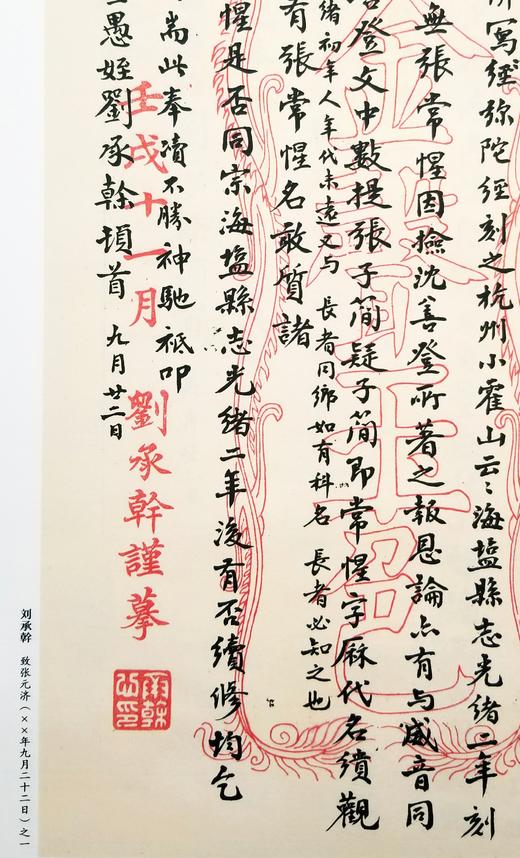 寫經弥陀經刻之杭州小霍山云〻海塩縣志光緒二年刻
無張常惺因撿沈善登所著之報恩論亦有与威音同
登文中數提張子簡疑子簡即常惺字厤代名績觀
緒初年人年代未遠又与 長者同鄉如有科名 長者必知之也
有張常惺名敢質諸
惺是否同宗海塩縣志光緒二年後有否續修均乞
耑此奉凟不勝神馳祗叩
愚姪劉承幹頓首 九月廿二日
壬戌十一月 劉承幹謹摹
刘承幹 致张元济（××年九月二十二日）之一